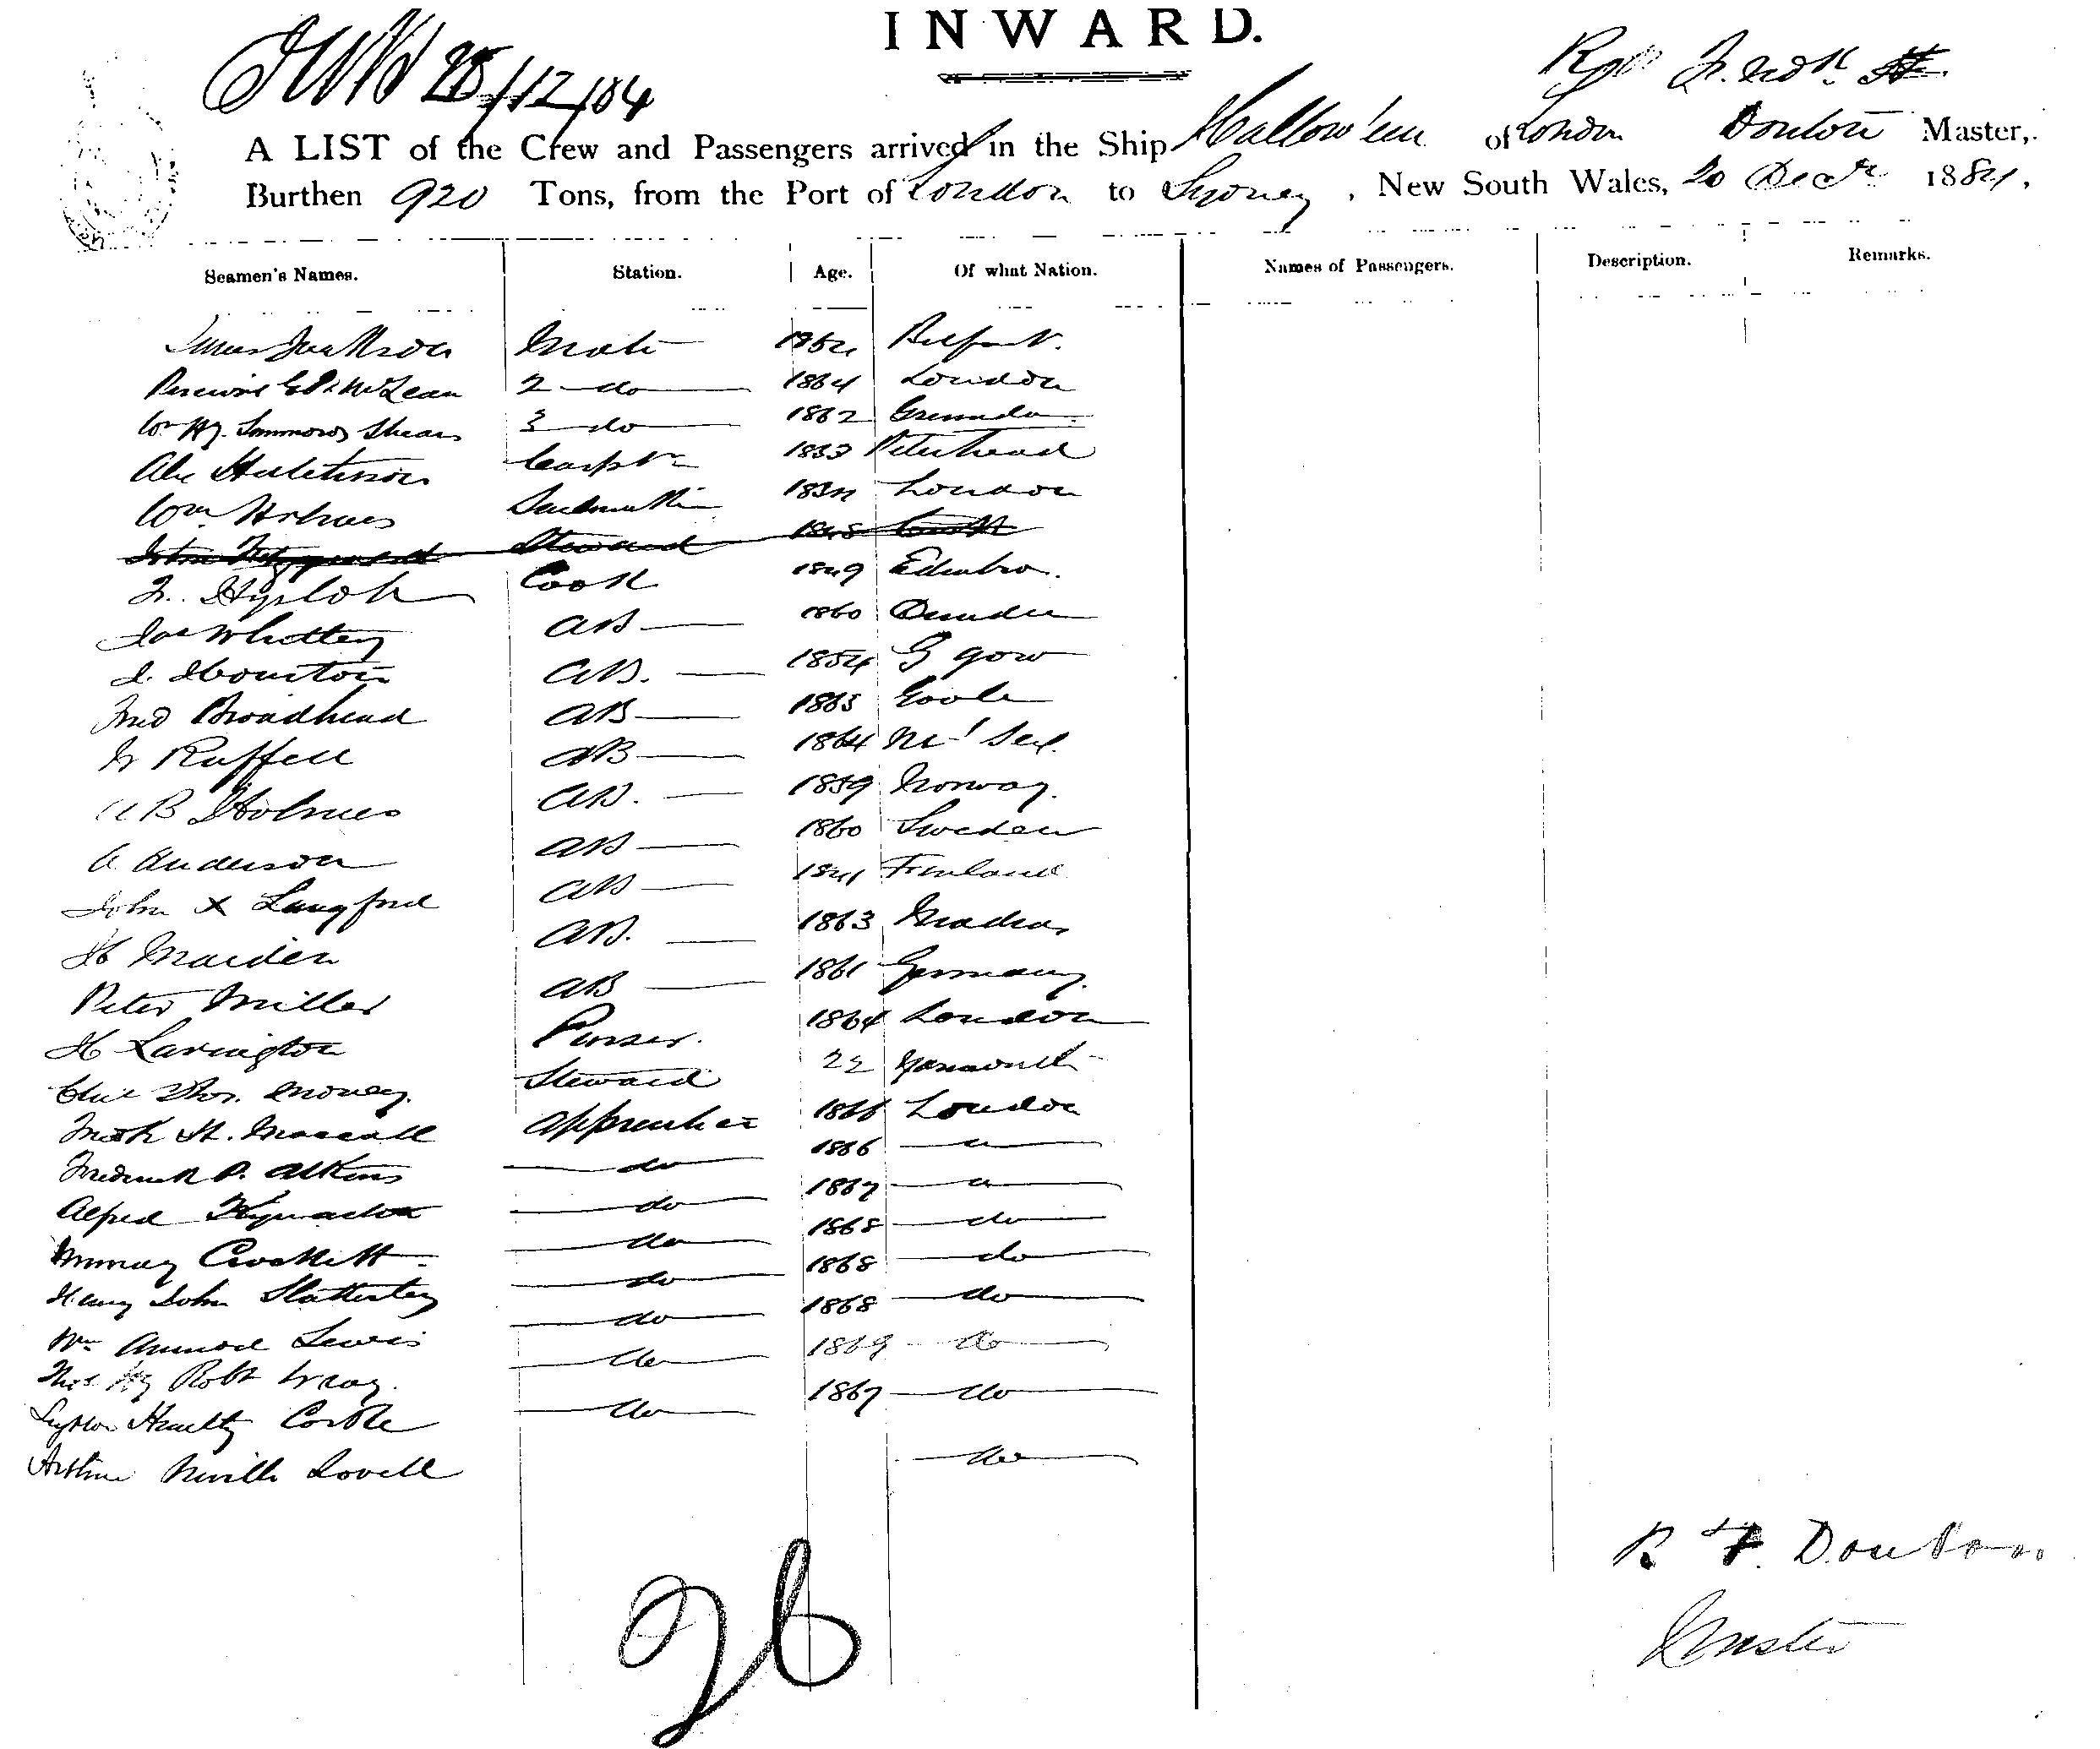 INWARD.
28/12/84
A LIST of the Crew and Passengers arrived in the Ship Hallow'een of London Doulton Master,
Burthen 920 Tons, from the Port of London to Sydney, New South Wales, 20 Decr 1884.
Seamen's Names. Station. Age. Of what Nation. Names of Passengers. Description. Remarks.
James Jackson Mate Belfast.
McLean 2 do 1864 London
Wm Hy. Shears 3 do 1862 Grenada
Alex Hutchison Carptr 1833 Peterhead
Wm Holmes Sailmaker London
John Fitzgerald Steward
Hyslop Cook 1849 Edinbro.
Jas Whittey AB 1860 Dundee
Houston AB. 1854 G gow
Fred Broadhead AB 1863 Goole
Ruffell AB 1864
B Holmes AB. 1859 Norway.
A. Anderson AB 1860 Sweden
John X Langford AB 1841 Finland
H Maiden AB. 1863 Madras
Peter Miller AB 1861 Germany.
H Lavington Purser. 1864 London
Thos. Money. Steward 22 Yarmouth
H. Apprentice 1866 London
Frederick P. Atkins do 1866
Alfred do 1867
Murray Crockett do 1868 do
Henry John Slatterley do 1868 do
Wm Lewis do 1868 do
Hy Robt Wray. do 1869 do
do 1867 do
Arthur Neville Lovell do
26
R F. Doulton
Master